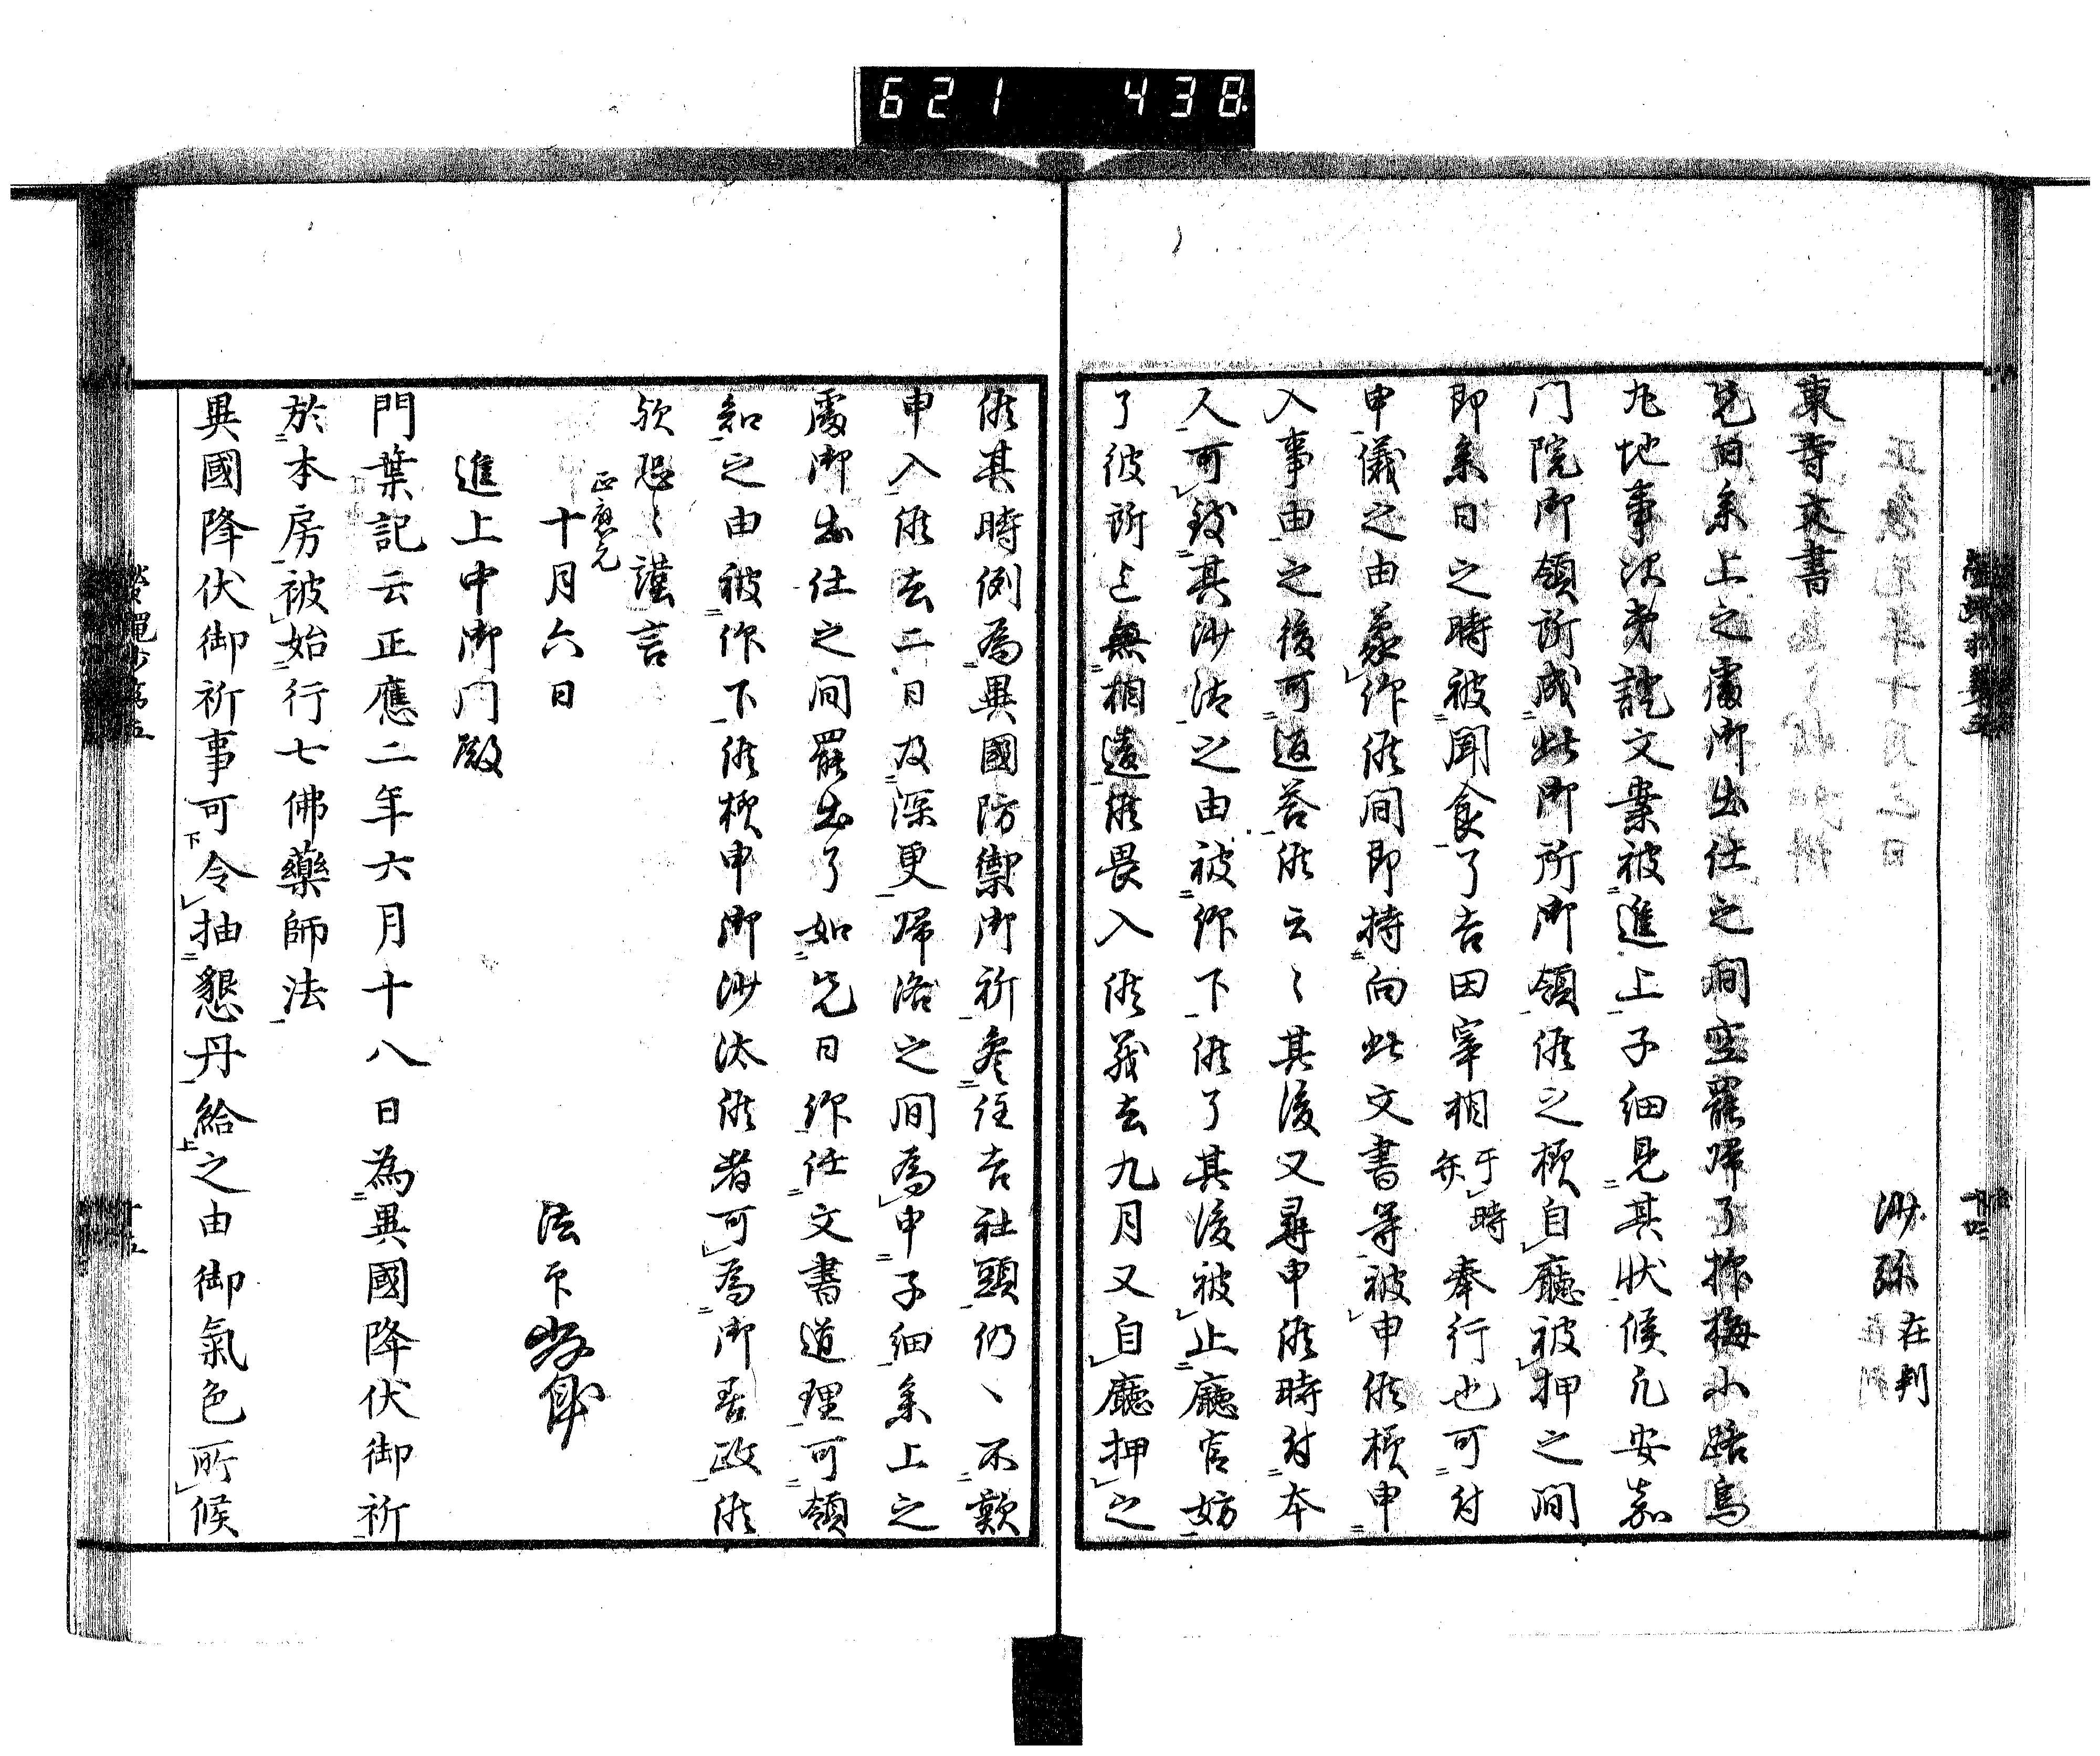 621 438
沙弥在判
東寺文書
先日参上之處御出仕之間空罷帰了抑梅小路烏
丸地事次㐧證文案被進上子細見其状候元安嘉
门院御領所成此御所御領候之條自廳被押之間
即参日之時被聞食了吉田宰相于時弁奉行也可付
申儀之由蒙仰候間即持向此文書等被申候條申
入事由之後可返答候云々其後又尋申候時付本
人可致其沙汰之由被仰下候了其後被止廳官妨
了彼所已無相違候畏入候義去九月又自廳押之
候其時例為異國防禦御祈参住吉社頭仍、不歎
申入候去二日及深更帰洛之間為申子細参上之
處御出仕之間罷出了如先日仰任文書道理可領
知之由被仰下候様申御沙汰候者可為御善政候
欤恐々謹言
正應元
十月六日
法下
進上中御门殿
門葉記云正應二年六月十八日為異國降伏御祈
於本房被始行七佛藥師法
異國降伏御祈事可令抽懇丹給之由御氣色所候